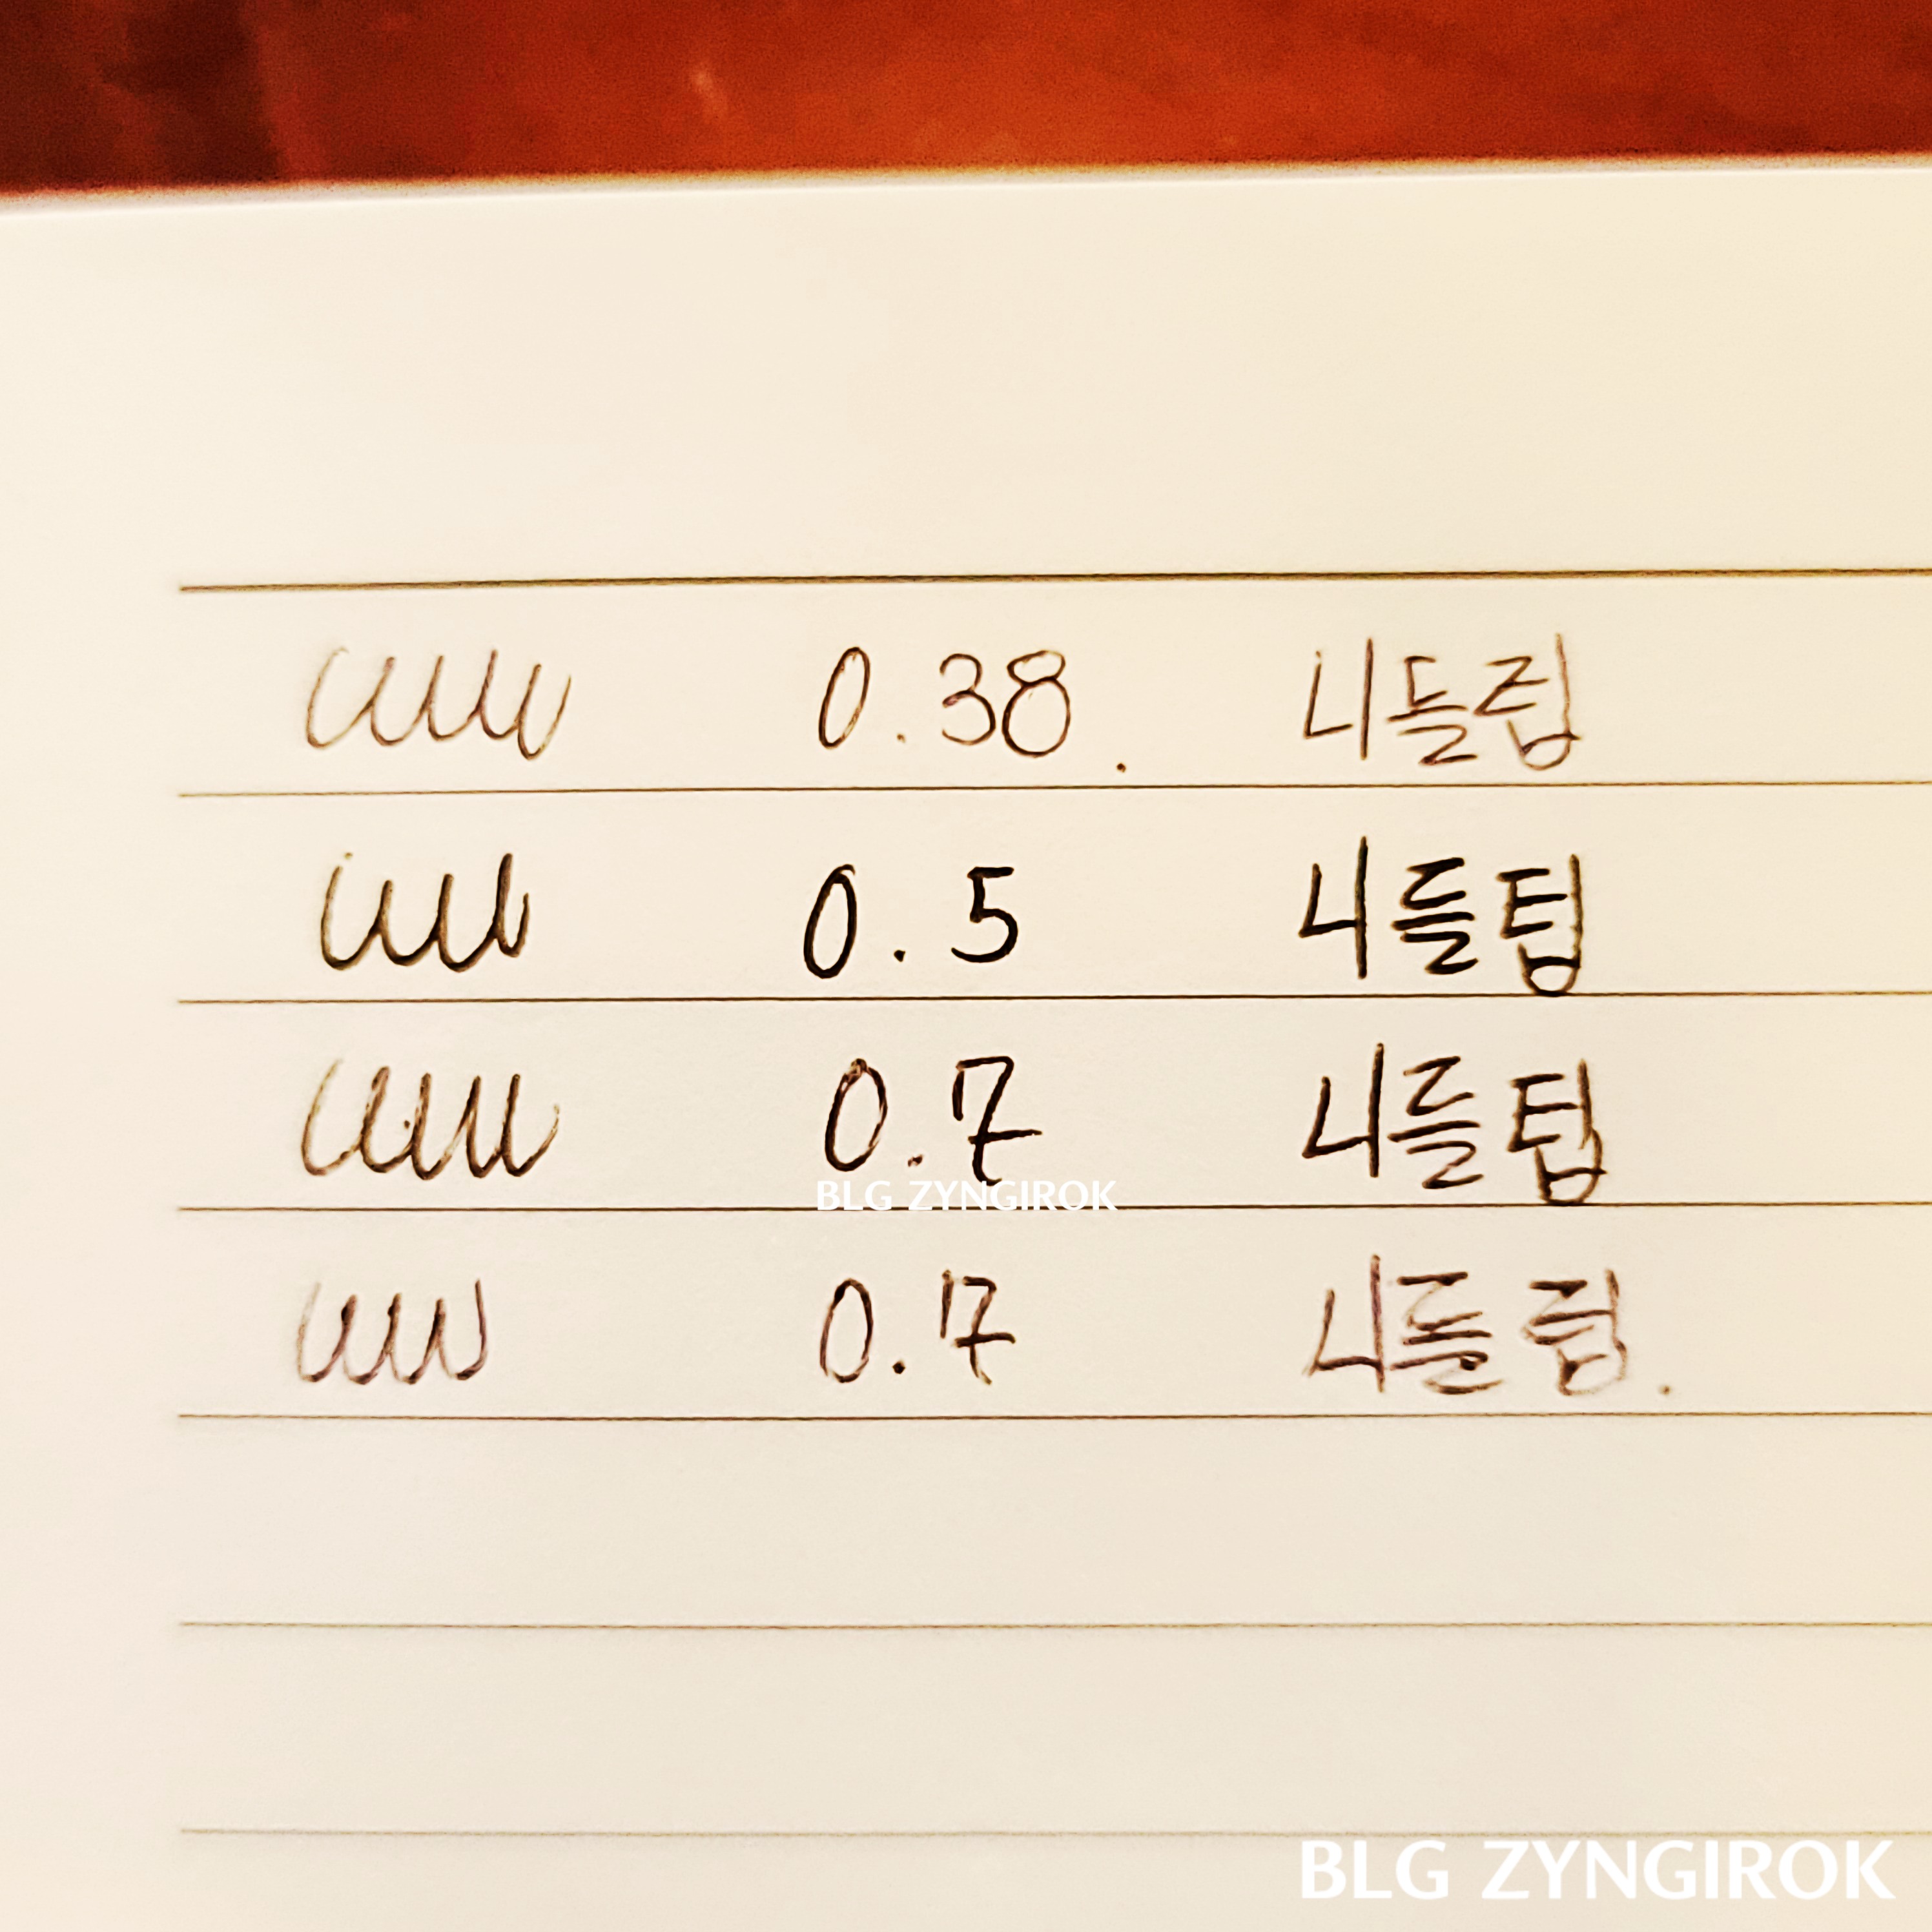 0.38. 니들팁
0.5 니들팁
0.7 니들팁
BLG ZYNGIROK
0.7 니들팁.
BLG ZYNGIROK